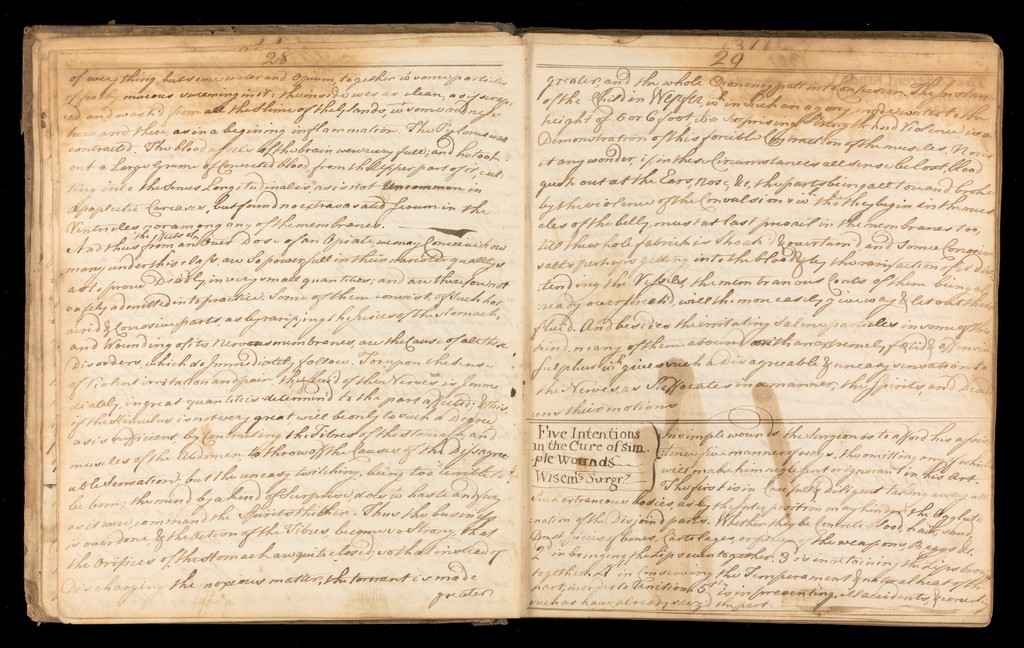 28
of every thing, but some water and Opium together with some particles
of frothy mucous swimming in it: the inside was as clean, as if scrap-
ed and wash'd from all the slime of the Glands, with some redness
here and there, as in a begining inflammation. The Pylorus was
contracted. The blood vessels of the brain were very full; and he took
out a Large Grume of Concreted blood, from the Upper part of it, cut-
ting into the Sinus Longitudinalis, as is not Uncommon in
Apoplectic Carcases, but found no extravasated Serum in the
Ventricles nor among any of the membranes.
And thus from the Effects of an Over Dose of an Opiate, we may Conceive how
many under this class, are so powerfull in their quality
as to prove Deadly, in very small quantities; and are therefore not
safely admitted into practice. Some of them consist of such hot
acrid & Corrosive parts, as by rarifying the juices of the stomach,
and Wounding of its Nervous membranes, are the Cause of all those
Disorders, which do Immediately follow. For upon the sense
of Violent irritation and pain, the fluid of the Nerves is Imme-
diately, in great quantities determin'd to the part affected; & this,
if the Stimulus is not very great, will be only to such a Degree
as is sufficient, by Contracting the Fibres of the stomach and
muscles of the Abdomen to throw off the Causes of the Disagree-
able Sensation, but the uneasy twitching, being too terrible to
be borne, the mind by a kind of Surprise, does with haste and fury
as it were, command the Spirits thither. Thus the business
is overdone, & the action of the Fibres, becomes so Strong, that
the Orifices of the stomach are quite closed; so that instead of
Discharging the noxious matter, the torment is made
greater
29
greater, and the whole Oeconomy put into Confusion. The instance
of the Child in Wepfer, who in such an agony
height of 5 or 6 foot, with Surprising Strength and Violence, is a
Demonstration of the forcible Contraction of the muscles. Nor is
it any wonder, if in these Circumstances all sense be lost, blood
gush out at the Ears, nose, &c, the parts being all tore and broke
by the violence of the Convulsions which tho' they begin in the mus-
cles of the belly, must at last prevail in the membranes too,
till the whole fabrick is shook & overturn'd and Some Corrosive
salts perhaps getting into the blood, & by the rarifaction of it dis-
tending the Vessels, the membranous Coats of them being al-
ready overstretch'd, will the more easily give way & let out their
fluid. And besides the irritating saline particles in some of this
kind, many of them abound with an extremely foetid & offensive
sulphur which gives such a disagreable & uneasy sensation to
the Nerves, as Suffocates in a manner, the Spirits, and Dead-
ens their motions
Five Intentions
in the Cure of sim-
ple Wounds
Wisem.s Surgr.?
In simple wounds the Surgeon is to afford his assis-
tance five manner of ways, the omitting any of which
will make him negligent or ignorant in his Art.
The first is in Carefull & diligent taking away all
such extraneous bodies, as by their interposition may hinder the Agglutti-
nation of the Disjoin'd parts. Whether they be Concrete blood, hair, sand,
Dust, pieces of bones, Cartilages, or pieces of the weapons, Raggs &c.
2d in bringing the Lips even together 3 is in retaining the Lips brought
together, 4th in Conserving the Temperament & natural heat of the
part, in order to Unition 5th is in preventing ill accidents, & correcting
such as have already seiz'd the part.